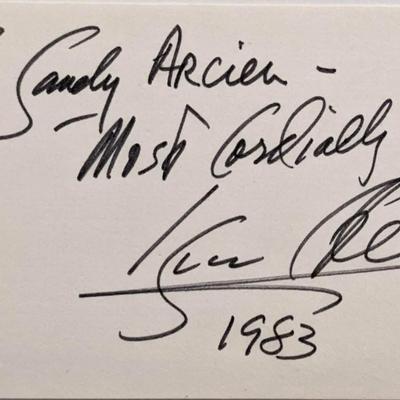 Sandy Arcien -
- Most Cordially
1983